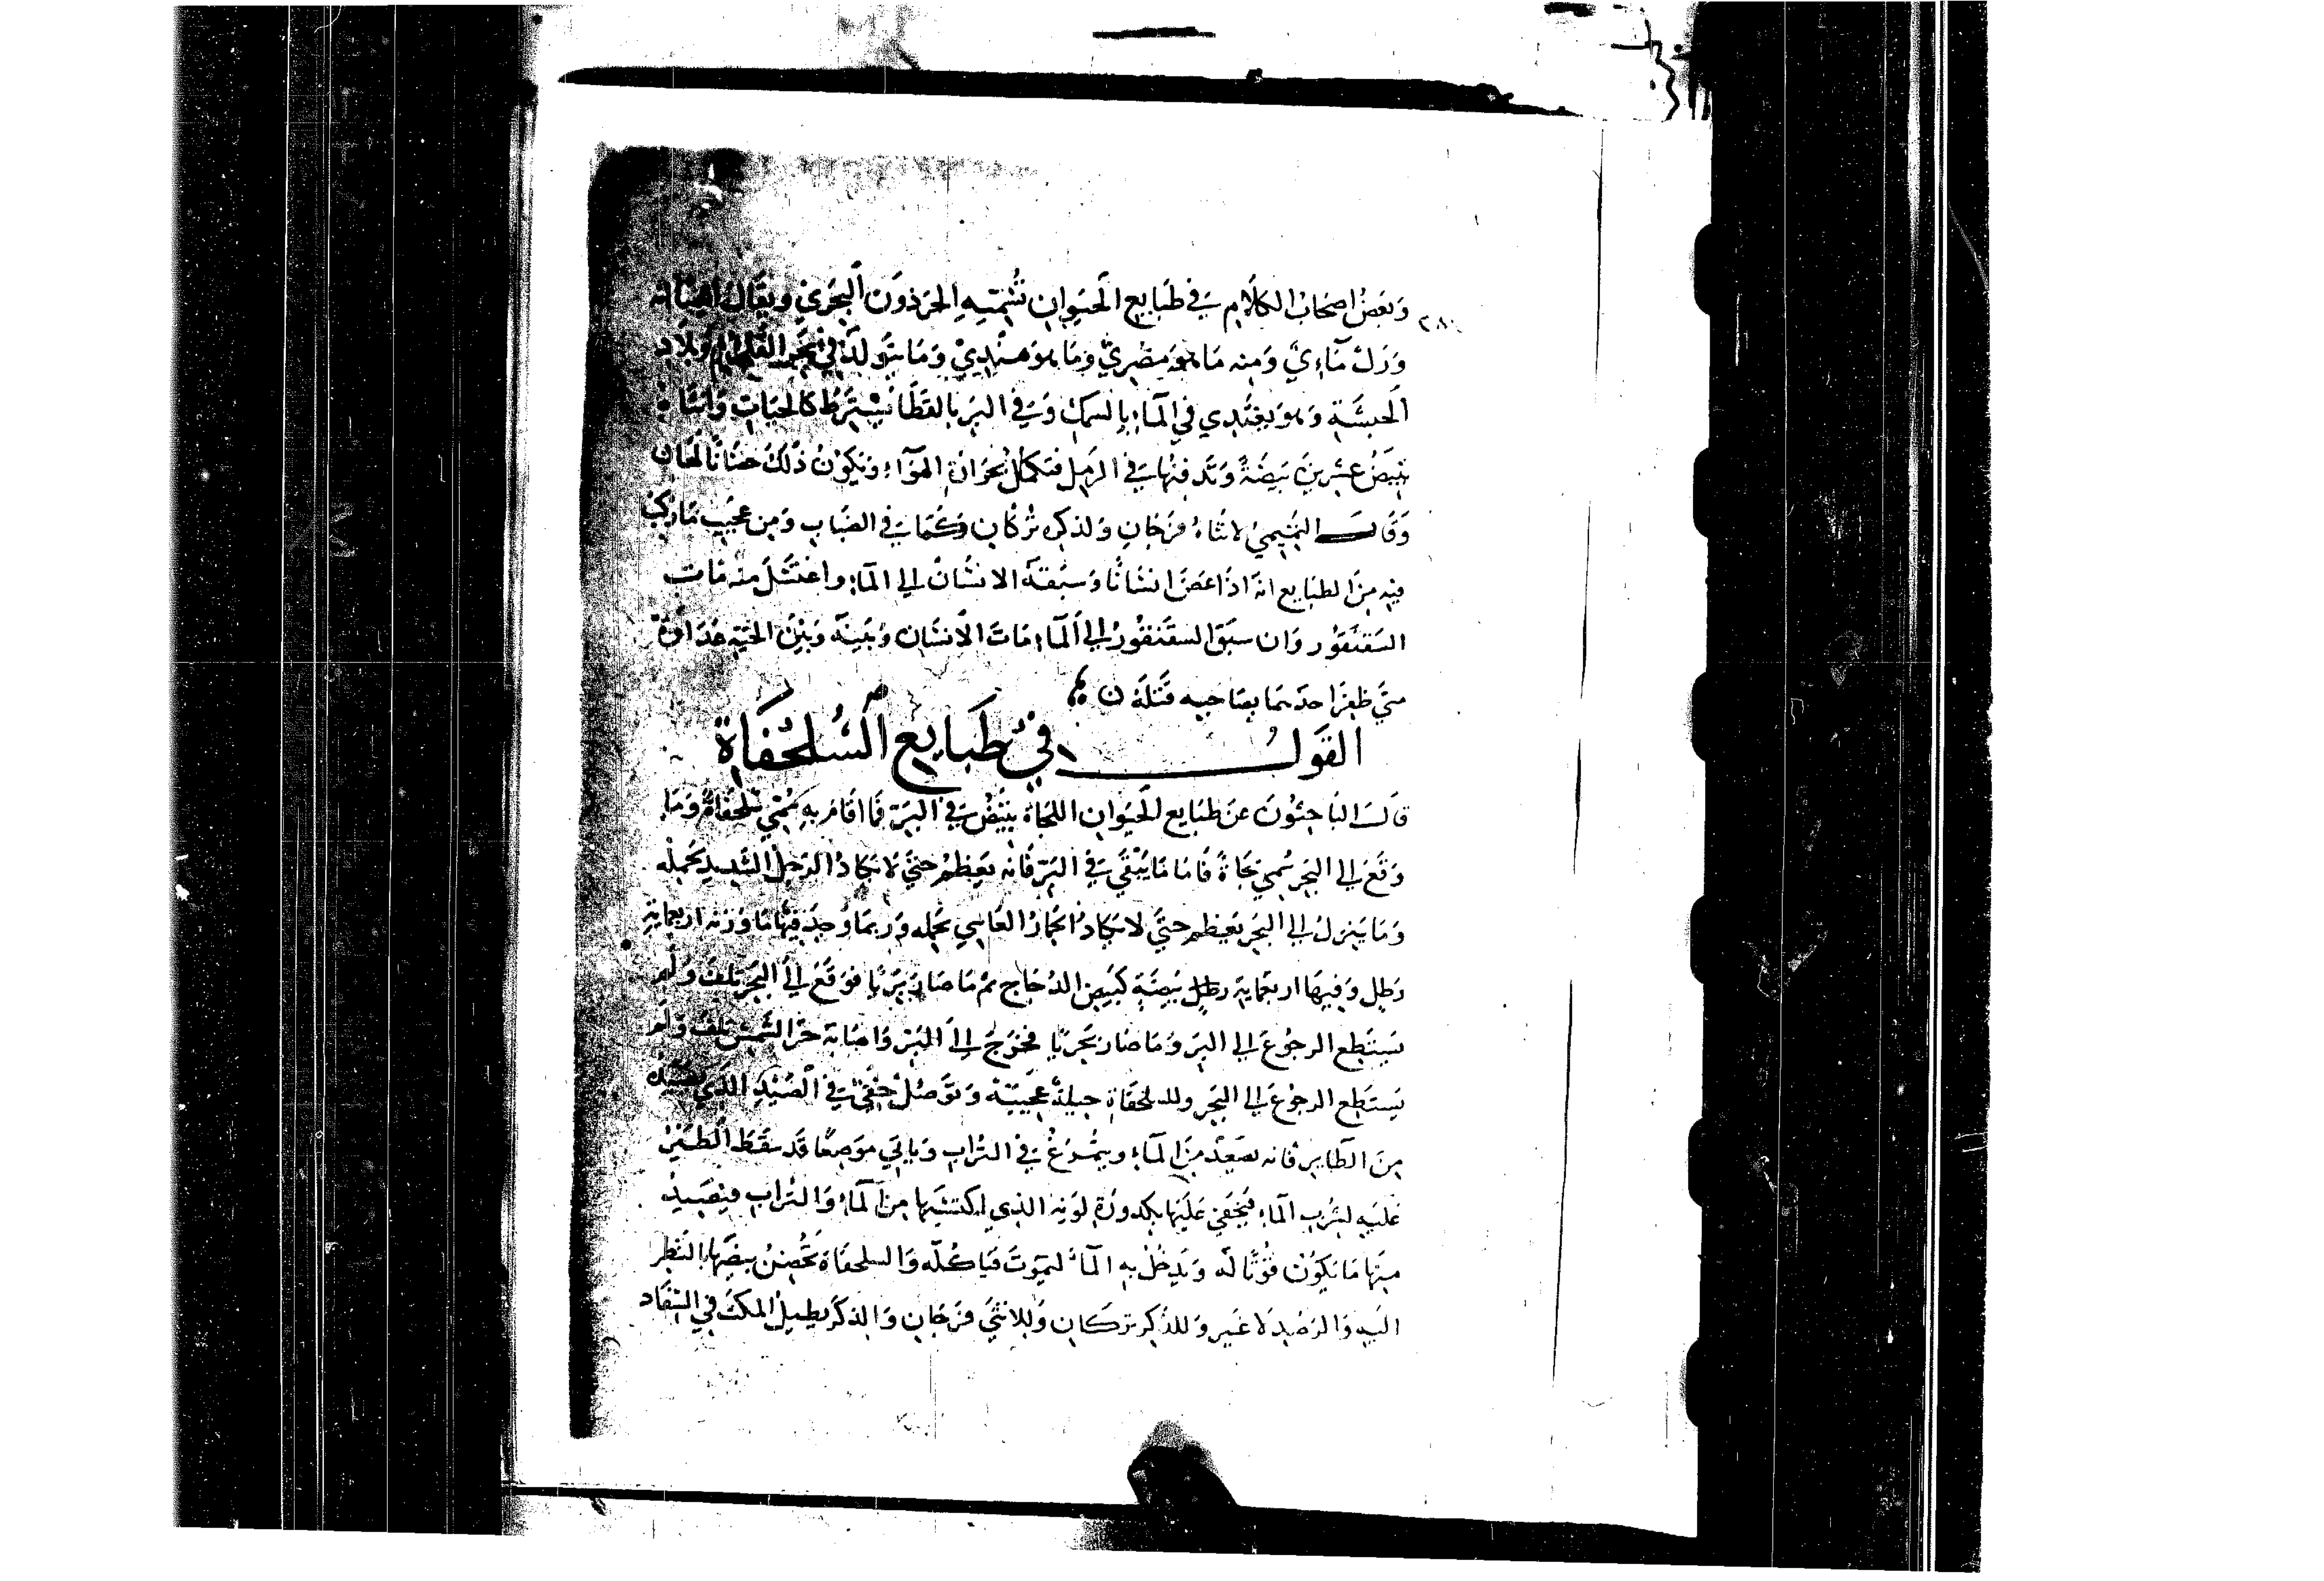 وَبَعضُ اصحَابُ الكَلَامِ في طَبَايعِ الحَيوانِ تُسَمّيهِ الحرذون البَحري ويقال ايضا انه
وَرَل مآءِيّ وَمنه مَا هو مِصريّ وَما هو هِنديّ وَمَا يتولد في بحر القلزم وبلاد
الحبشَةِ وَهوَ يغتَدِي في المآءِ بالسمك وَفي البرّ بالقطا يَسْتَرِط كالحيَاتِ وانثاه
تبيضُ عشرينَ بَيضَةً وَتدفنها في الرمل فتكمل بحَرارَةِ الهوآءِ وَيَكونُ ذلكَ حضانا لها
وَقَالَ التميمي لانثاهُ فرجَانِ ولذكره نزكان كما في الضباب وَمن عجيب ما ركب
فيه منَ الطبَايع انه اذا عضّ انسَانًا وَسَبَقهُ الانسَان الي المآءِ واغتسَلَ منه مات
السَقنقور وَان سبَق السقنقورُ الي المآءِ مَاتَ الانسَان وَبَينه وَبَيْنَ الحيّةِ عدَاوة
متي ظفرَ احدهما بصَاحبه قتَلَه ن
القول في طَبَايع السُلحْفَاة
قَالَ البَاحثونَ عن طبَايع الحَيوانِ اللجاة تبيض في البَرّ فما اقامَ به سُمّي سلحفاة وما
وَقَعَ الي البَحر سُمي لجَاةً فاما مَا يَبْقَي في البَرّ فانه يَعظمُ حتيَ لا يَكادُ الرجل الشديد يحمله
وَمَا يَنزل الي البَحر يعظم حتيَ لا يَكادُ الحمارُ القاسي يحمله وَربمَا وُجِدَ فيهَا مَا وَزنه اربعماية
رَطل وَفيهَا اربعماية بَيضَةٍ كبَيض الدجَاج ثم مَا صَارَ بَرّيا فوَقَعَ الي البحر تلفَ ولم
يَستَطع الرجُوعَ الي البَرّ وَمَا صَار بَحرِيّا فخرَج الي البَرّ وَاصَابَهُ حَرّ الشمسِ تلفَ ولم
يَستَطع الرجُوعَ الي البَحر وللسلحفاةِ حِيلةٌ عجيبَة وَتوَصّلٌ خفيّ في الصَيْدِ الذي يصيده
منَ الطَاير فانه يصعَدُ منَ المآءِ ويتمَرغُ في التراب وَيَاتي موضعًا قد سقَطَ الطير
عَليهِ لشرب المآءِ فيَخفَي عَليهَا بكدورَةِ لونه الذي اكتسَبهَا منَ المآءِ وَالترابِ فيَصيدُ
منهَا مَا يَكونُ قُوتًا لهُ وَيَدخُلُ به المآءَ ليموتَ فيَاكله وَالسلحفاة تحضنُ بيضَها بالنظر
اليه وَالرَصد لا غَير وَللذكر نزكانِ وَللانثي فرَجَانِ وَالذكر يطيل المكثَ في السفاد